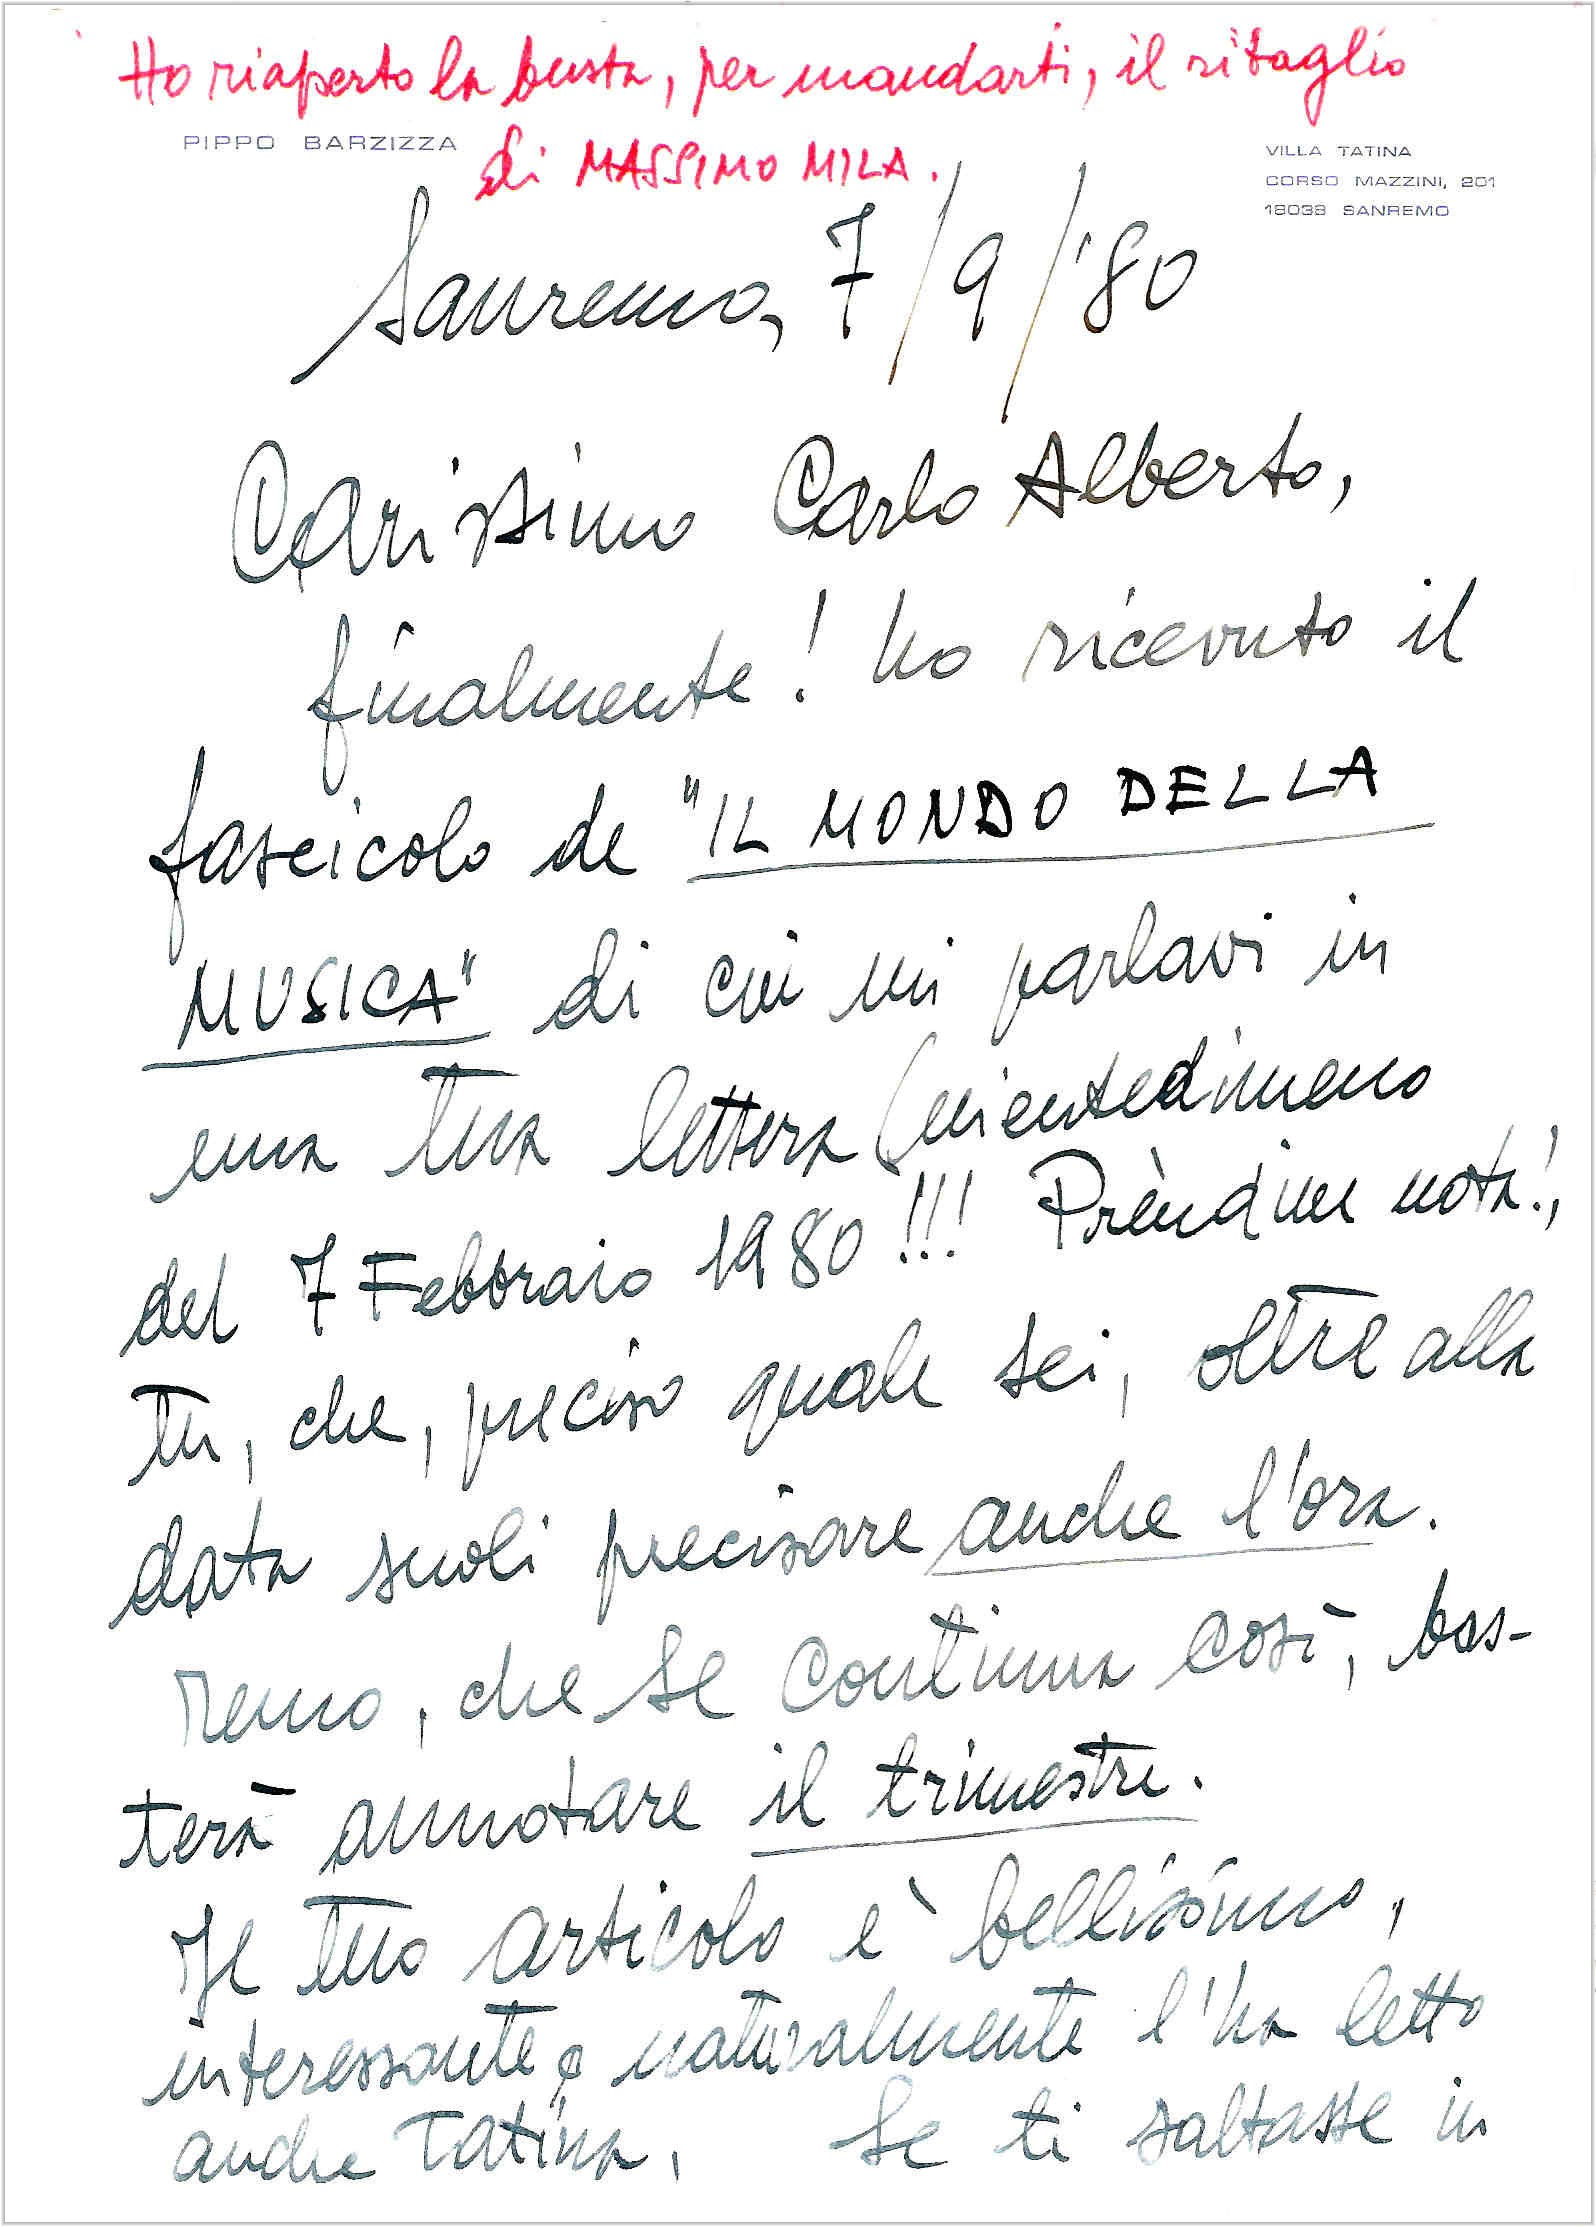 Ho riaperto la busta, per mandarti, il ritaglio
di MASSIMO MILA.
PIPPO BARZIZZA
VILLA TATINA
CORSO MAZZINI, 201
18038 SANREMO
Sanremo, 7/9/'80
Carissimo Carlo Alberto,
finalmente! ho ricevuto il
fascicolo de "IL MONDO DELLA
MUSICA" di cui mi parlavi in
una tua lettera (nientedimeno
del 7 Febbraio 1980!!! Prèndine nota!,
tu, che, preciso quale sei, oltre alla
data suoli precisare anche l'ora.
Temo, che se continua così, bas-
terà annotare il trimestre.
Il tuo articolo è bellissimo,
interessante e naturalmente l'ha letto
anche Tatina. Se ti saltasse in